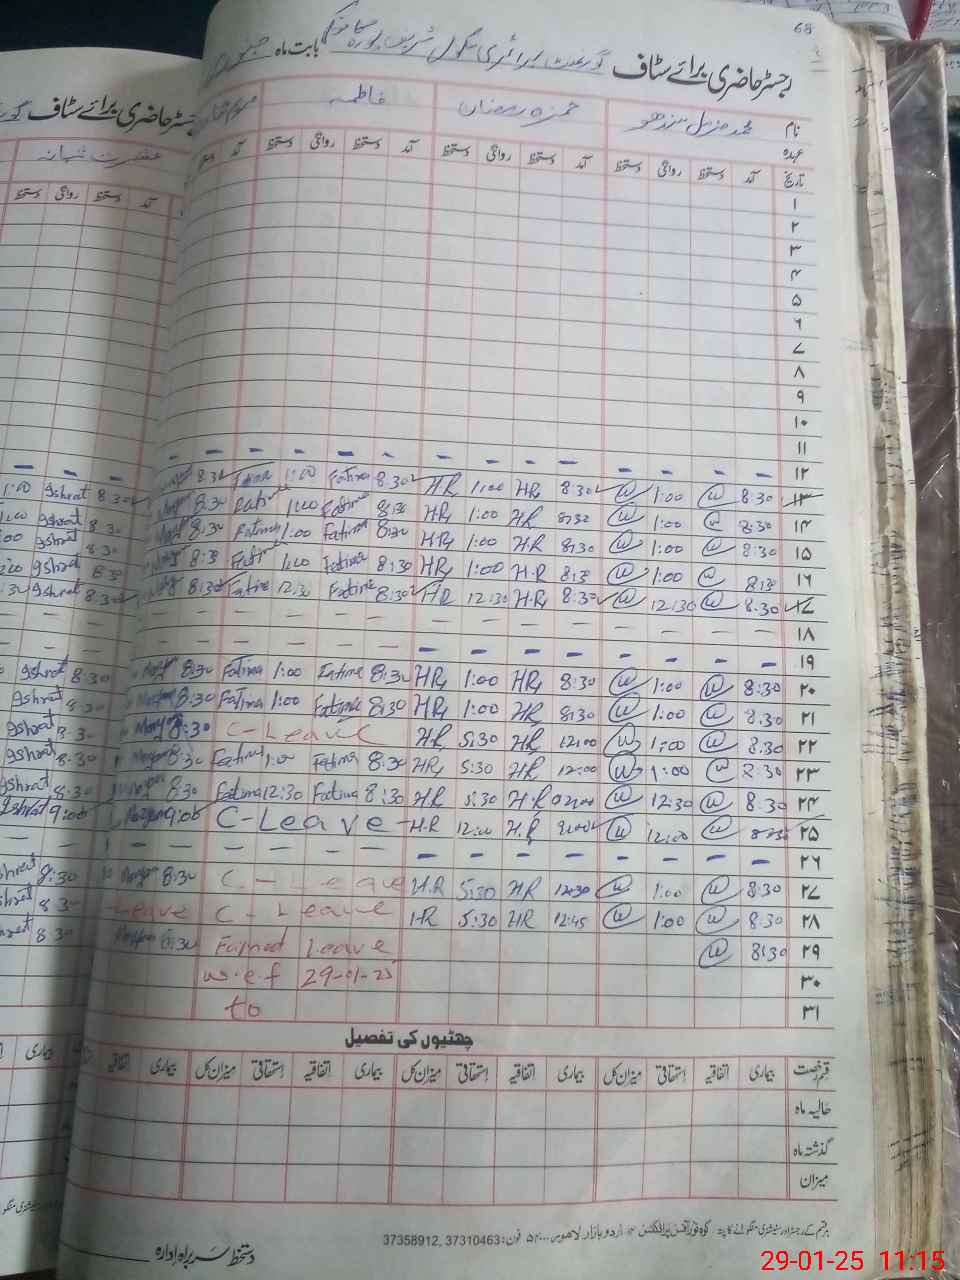 68
رجسٹر حاضری برائے سٹاف گورنمنٹ پرائمری سکول بابت ماہ جنوری
نام محمد مزمل سندھو حمزہ رمضان فاطمہ مریم
عہدہ
تاریخ آمد دستخط رواگی دستخط آمد دستخط رواگی دستخط آمد دستخط رواگی دستخط آمد
رجسٹر حاضری برائے سٹاف
عشرت شبانہ
آمد دستخط رواگی دستخط
۱
۲
۳
۴
۵
۶
۷
۸
۹
۱۰
۱۱
۱۲ – – – – – – – – – – – –
1:00 Ishrat 8:30 8:30 Fatima 1:00 Fatima 8:30 HR 1:00 HR 8:30 1:00 8:30 ۱۳
1:00 Ishrat 8:30 8:30 Fatima 1:00 Fatima 8:30 HR 1:00 HR 8:30 1:00 8:30 ۱۴
1:00 Ishrat 8:30 8:30 Fatima 1:00 Fatima 8:30 HR 1:00 HR 8:30 1:00 8:30 ۱۵
Ishrat 8:30 8:30 Fatima 1:00 Fatima 8:30 HR 1:00 H.R 8:30 1:00 8:30 ۱۶
Ishrat 8:30 8:30 Fatima 12:30 Fatima 8:30 HR 12:30 HR 8:30 12:30 8:30 ۱۷
– – – – – – – – – – – – ۱۸
– – – – – – – – – – – – ۱۹
Ishrat 8:30 Maryam 8:30 Fatima 1:00 Fatima 8:30 HR 1:00 HR 8:30 1:00 8:30 ۲۰
Ishrat 8:30 Maryam 8:30 Fatima 1:00 Fatima 8:30 HR 1:00 HR 8:30 1:00 8:30 ۲۱
Ishrat 8:30 Maryam 8:30 C-Leave HR 5:30 HR 12:00 1:00 8:30 ۲۲
Ishrat 8:30 Maryam 8:30 Fatima 1:00 Fatima 8:30 HR 5:30 HR 12:00 1:00 8:30 ۲۳
Ishrat 8:30 Maryam 8:30 Fatima 12:30 Fatima 8:30 HR 5:30 H.R 12:30 8:30 ۲۴
Ishrat 9:00 Maryam 9:00 C-Leave H.R 12:00 H.R 12:00 8:30 ۲۵
– – – – – – – – – – – – ۲۶
Ishrat 8:30 Maryam 8:30 C-Leave H.R 5:30 HR 12:30 1:00 8:30 ۲۷
Ishrat 8:30 Leave C-Leave HR 5:30 HR 12:45 1:00 8:30 ۲۸
Ishrat 8:30 Maryam 8:30 Leave 8:30 ۲۹
w.e.f 29-01-25 ۳۰
to ۳۱
چھٹیوں کی تفصیل
قسم رخصت بیماری اتفاقیہ استحقاقی میزان کل بیماری اتفاقیہ استحقاقی میزان کل بیماری اتفاقیہ استحقاقی میزان کل بیماری اتفاقیہ
حالیہ ماہ
گذشتہ ماہ
میزان
ہر قسم کے رجسٹر اور سٹیشنری منگوانے کا پتہ اردو بازار لاہور فون: 37310463, 37358912
دستخط سربراہ ادارہ
29-01-25 11:15